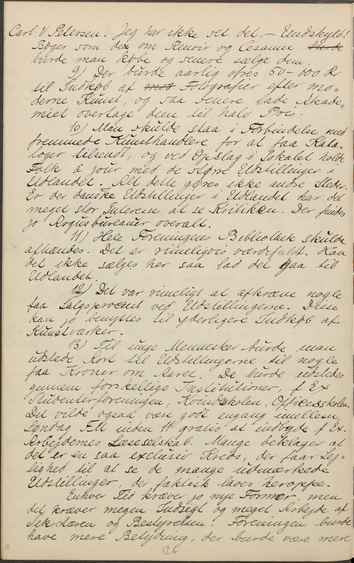 Carl V Petersen. Jeg har ikke set det. — Undskyld!
Bøger som den om Renoir og Cezanne
burde man købe og senere sælge dem.
9) Der burde aarlig ofres 50-100 Kr
til Indkøb af Fotografier efter mo-
derne Kunst, og saa senere lade
med overtage dem til halv Pris.
10) Man skulde staa i Forbindelse med
fremmede Kunsthandlere for at faa Kata-
loger tilsendt, og ved Opslag i Lokalet holde
Folk à jour med de større Udstillinger i
Udlandet. Alt dette gøres ikke andre Steder.
Er der danske Udstillinger i Udlandet har det
meget stor Interesse at se Kritikken. Der findes
jo overalt.
11) Hele Foreningens Bibliothek skulde
afhændes. Det er rimeligvis værdifuldt. Kan
det ikke sælges her saa lad det gaa til
Udlandet.
12) Det var rimeligt at afkræve nogle
faa Salgsprocent ved Udstillingerne. Disse
kan jo benyttes til yderligere Indkøb af
Kunstværker.
13) Til unge Mennesker burde man
udstede Kort til Udstillingerne til nogle
faa Kroner om Aaret. De burde
gennem forskellige Institutioner, f Ex
Studenterforeningen, Officersskolen.
Det vilde ogsaa være godt engang imellem
Søndag Fm inden 11 gratis at indbyde f Ex.
Arbejdernes Læseselskab. Mange beklager at
det er en saa exclusiv Kreds, der faar Lej-
lighed til at se de mange udmærkede
Udstillinger, der faktisk laves heroppe.
Enhver Tid kræver jo nye Former, men
det kræver megen Indsigt og meget Arbejde af
Sekretæren og Bestyrelsen. Foreningen burde
have mere Betydning, der burde være mere